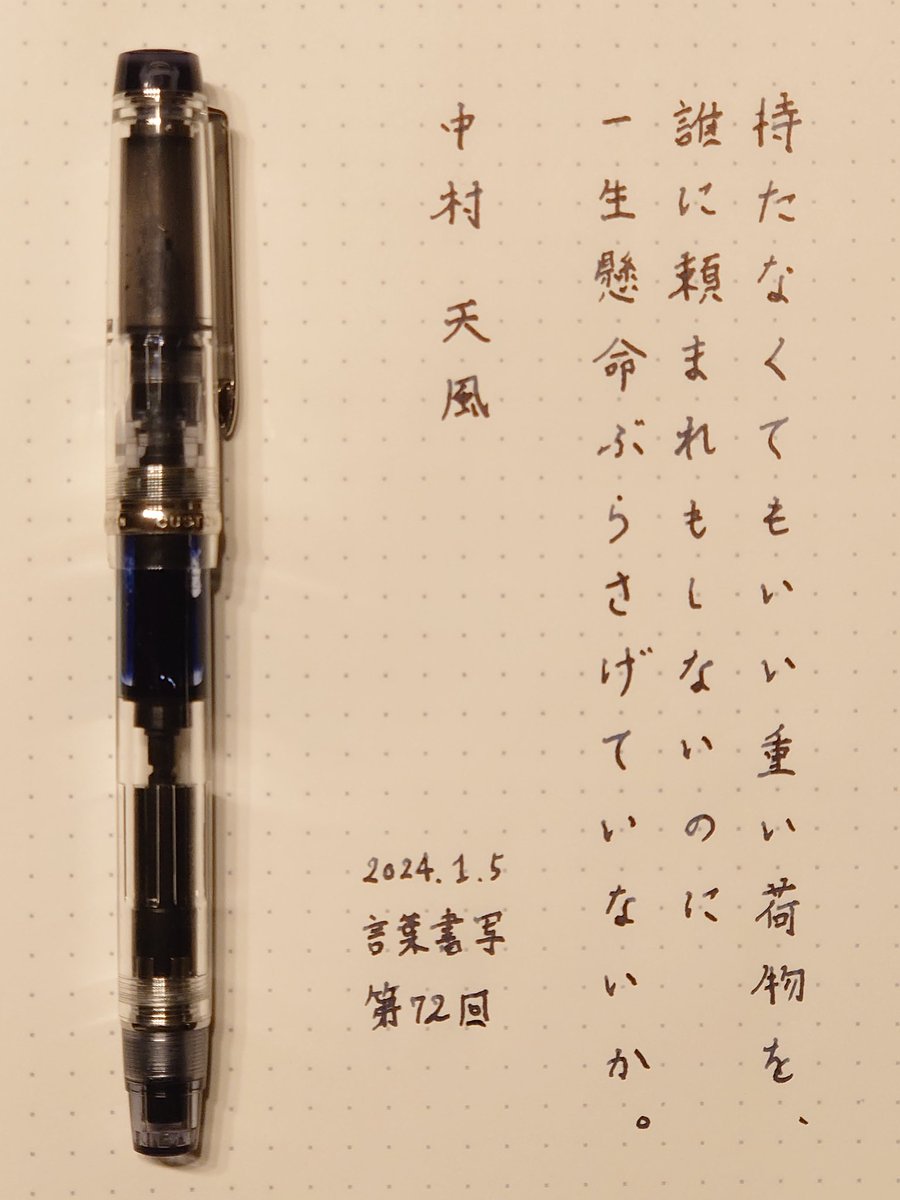 持たなくてもいい重い荷物を、
誰に頼まれもしないのに
一生懸命ぶらさげていないか。
中村 天風
2024.1.5
言葉書写
第72回